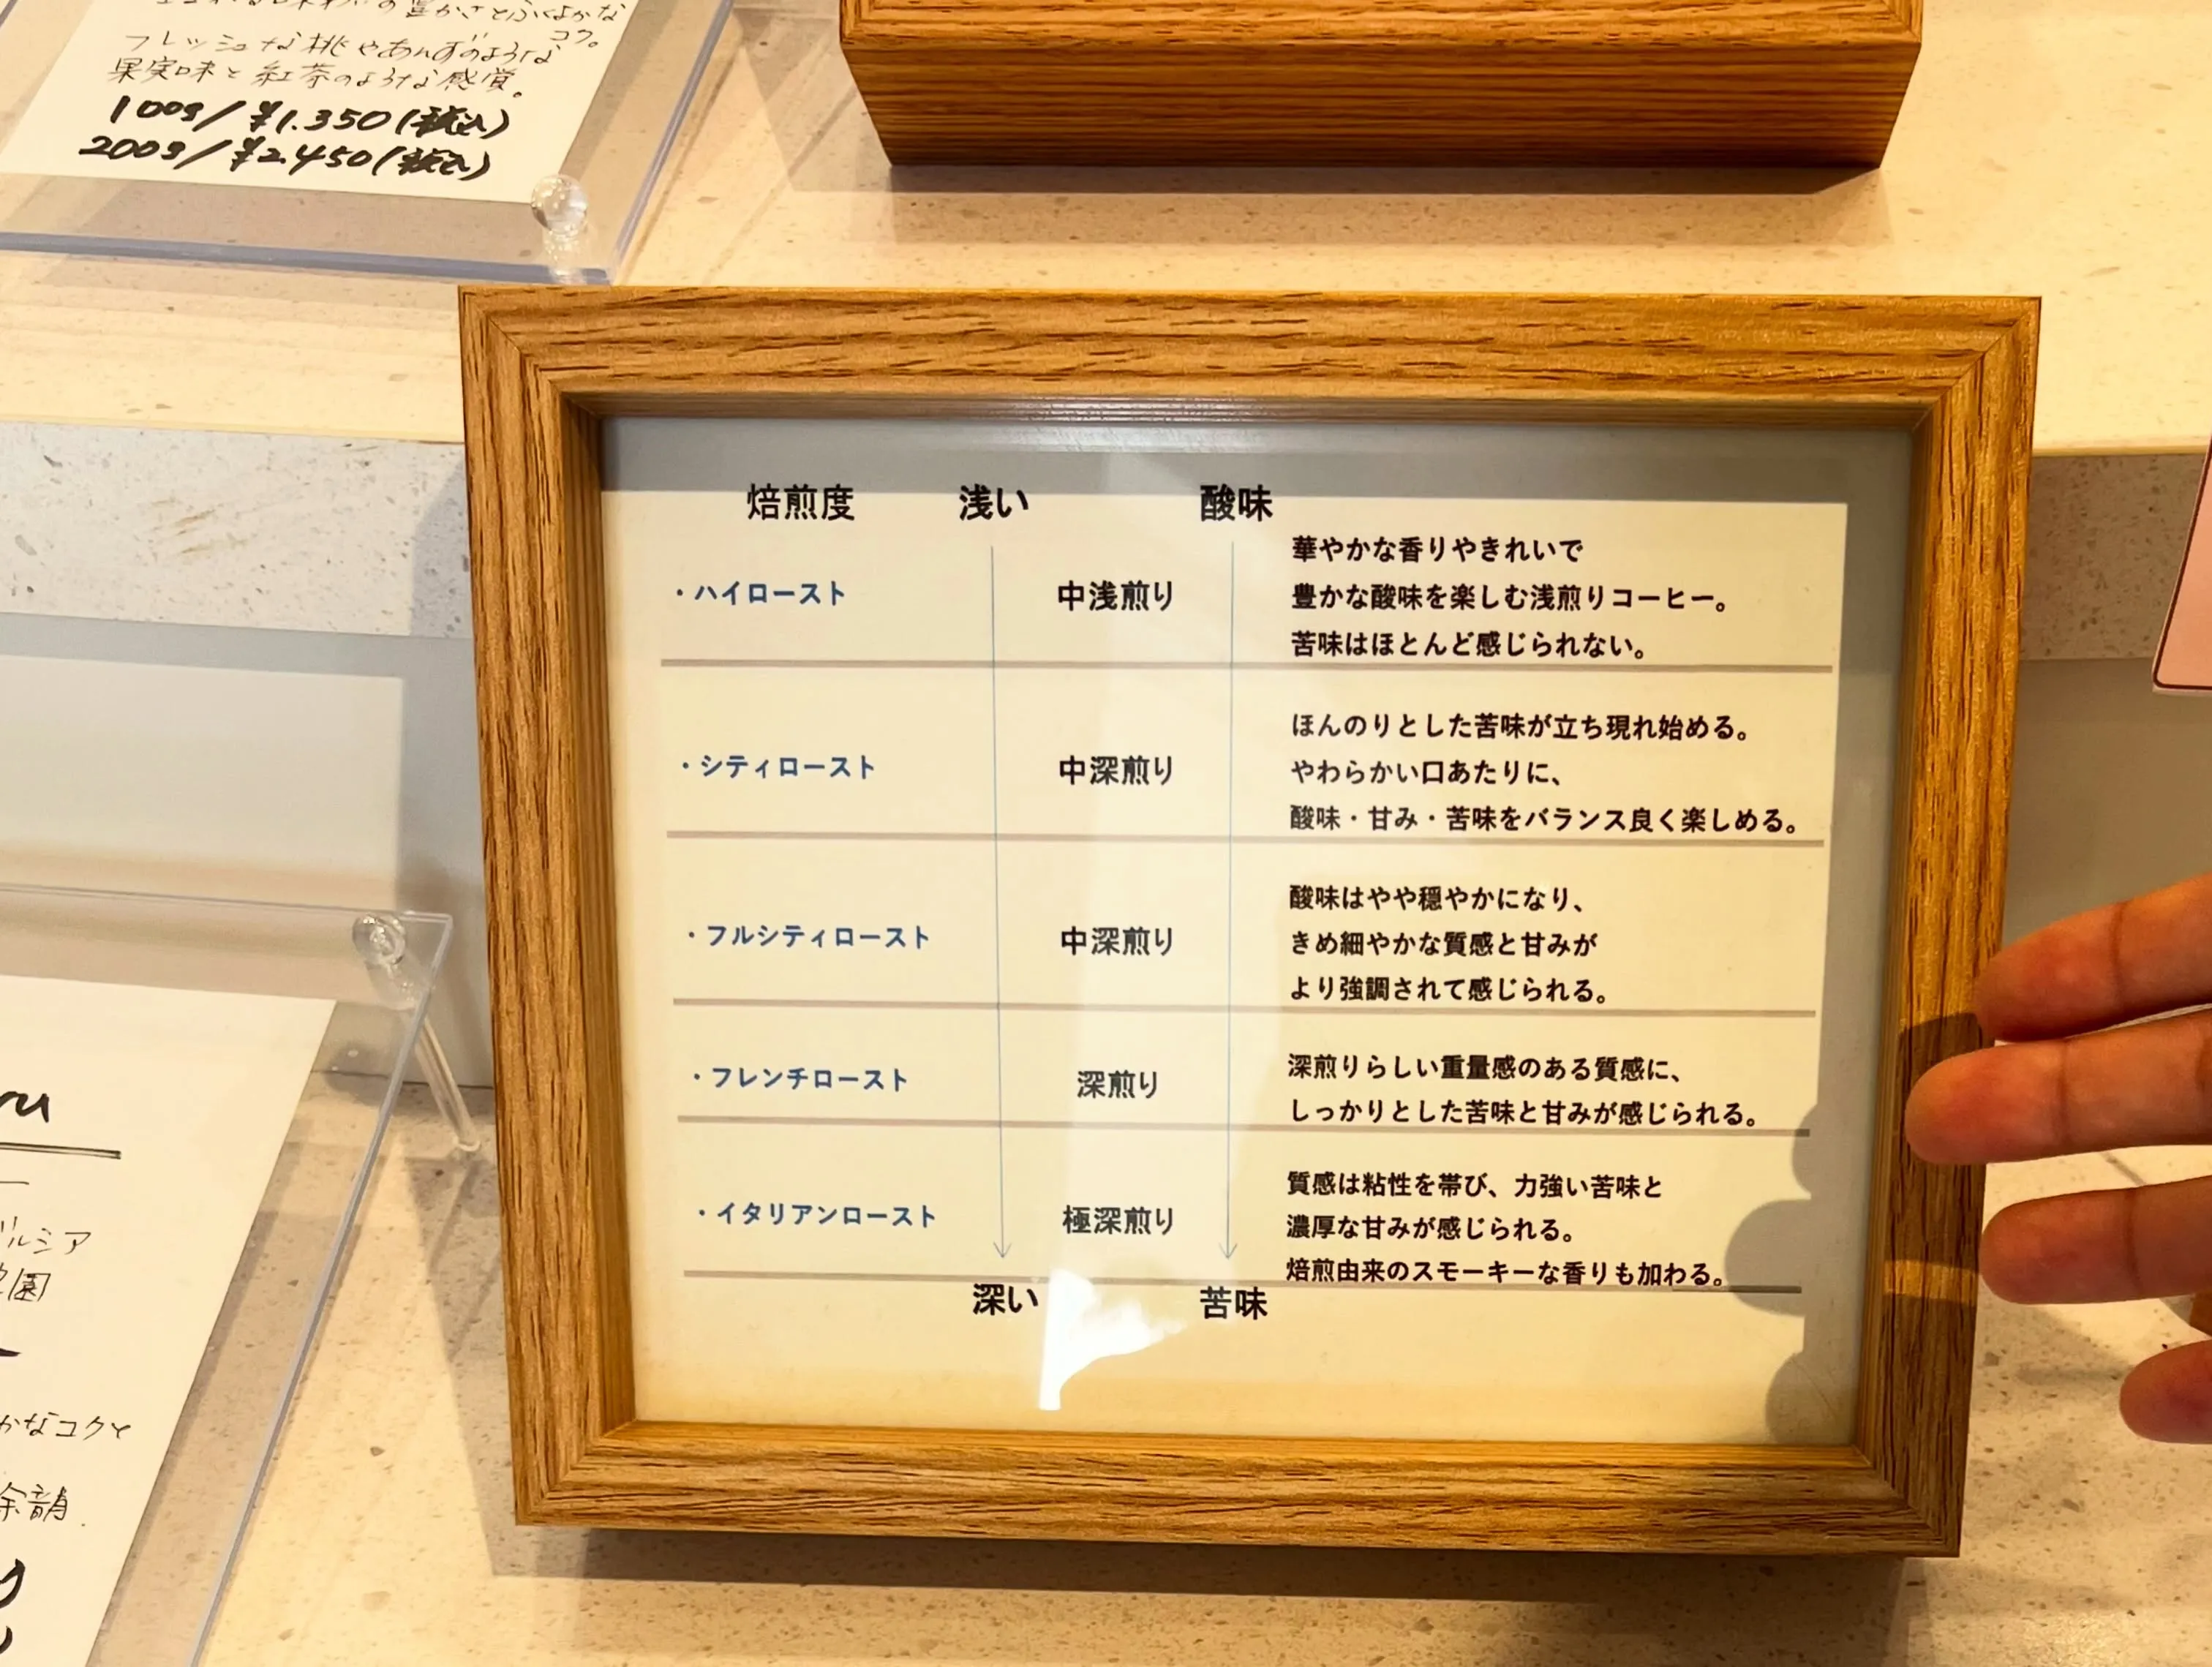 フレッシュな桃やあんずのような
コク。
果実味と紅茶のような感覚。
100g/¥1.350(税込)
200g/¥2.450(税込)
焙煎度 浅い 酸味
・ハイロースト 中浅煎り
華やかな香りやきれいで
豊かな酸味を楽しむ浅煎りコーヒー。
苦味はほとんど感じられない。
・シティロースト 中深煎り
ほんのりとした苦味が立ち現れ始める。
やわらかい口あたりに、
酸味・甘み・苦味をバランス良く楽しめる。
・フルシティロースト 中深煎り
酸味はやや穏やかになり、
きめ細やかな質感と甘みが
より強調されて感じられる。
・フレンチロースト 深煎り
深煎りらしい重量感のある質感に、
しっかりとした苦味と甘みが感じられる。
・イタリアンロースト 極深煎り
質感は粘性を帯び、力強い苦味と
濃厚な甘みが感じられる。
焙煎由来のスモーキーな香りも加わる。
深い 苦味
ルシア
園
かなコクと
余韻